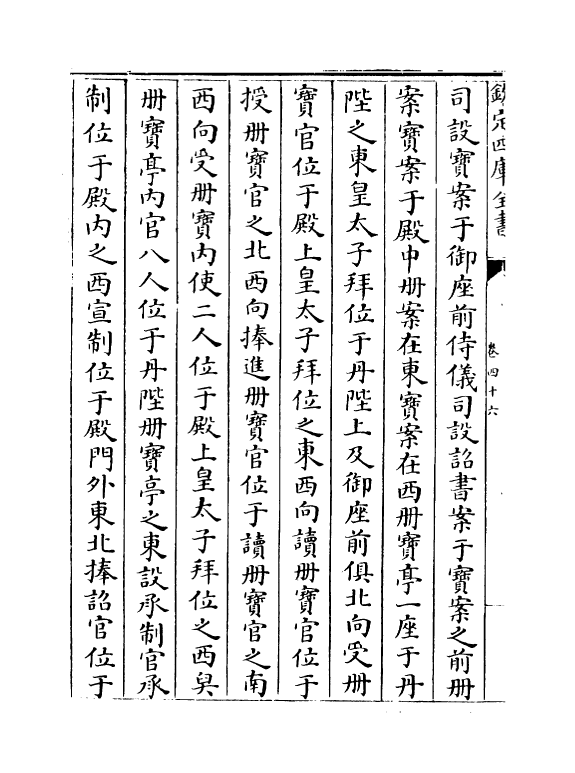 欽定四庫全書
卷四十六
司設寶案于御座前侍儀司設詔書案于寶案之前册
案寶案于殿中册案在東寶案在西册寶亭一座于丹
陛之東皇太子拜位于丹陛上及御座前俱北向受册
寶官位于殿上皇太子拜位之東西向讀册寶官位于
授册寶官之北西向捧進册寶官位于讀册寶官之南
西向受册寶内使二人位于殿上皇太子拜位之西舁
册寶亭内官八人位于丹陛册寶亭之東設承制官承
制位于殿内之西宣制位于殿門外東北捧詔官位于